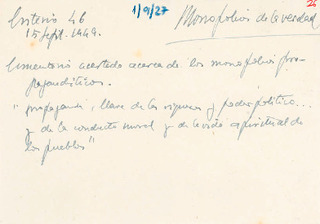 Criterio 46
15 sept. 1949.
1/9/27
Monopolios de la verdad
26
Comentario acertado acerca de los monopolios pro-
pagandísticos.
"propaganda, llave de las riquezas y poder político...
y de la conducta moral y de la vida espiritual de
los pueblos"